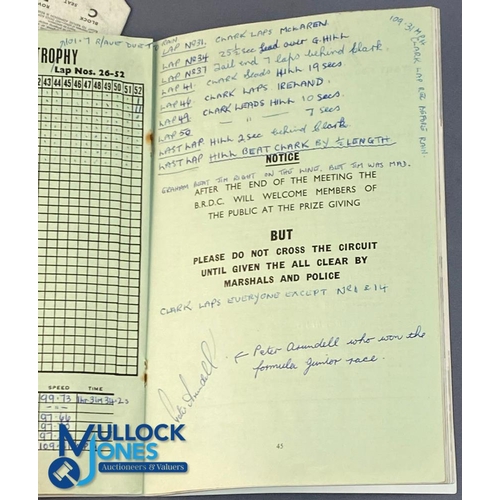 BLOCK
SEAT
ROW
TROPHY
/Lap Nos. 26-52
42 43 44 45 46 47 48 49 50 51 52
RAIN
LAP No 31. CLARK LAPS McLAREN.
LAP No 34 25½ Sec lead over G. HILL
LAP No 37 Tail end 7 laps behind Clark.
LAP 41. CLARK leads HILL 19 secs.
LAP 46. CLARK LAPS IRELAND.
LAP 49. CLARK LEADS HILL 10 secs.
LAP 50 " " " 7 secs
LAST LAP HILL 2 sec behind Clark
LAST LAP HILL BEAT CLARK BY ½ LENGTH
109.31 MPH
CLARK LAP REC BEFORE RAIN
NOTICE
GRAHAM BEAT JIM RIGHT ON THE LINE, BUT JIM WAS
AFTER THE END OF THE MEETING THE
B.R.D.C. WILL WELCOME MEMBERS OF
THE PUBLIC AT THE PRIZE GIVING
BUT
PLEASE DO NOT CROSS THE CIRCUIT
UNTIL GIVEN THE ALL CLEAR BY
MARSHALS AND POLICE
CLARK LAPS EVERYONE EXCEPT No 1 & 14
Peter Arundell
← Peter Arundell who won the
formula Junior race.
SPEED TIME
99.73 1hr 31M 34.2s
97.66
97.
97.
109.31
45
MULLOCK
JONES
Auctioneers & Valuers